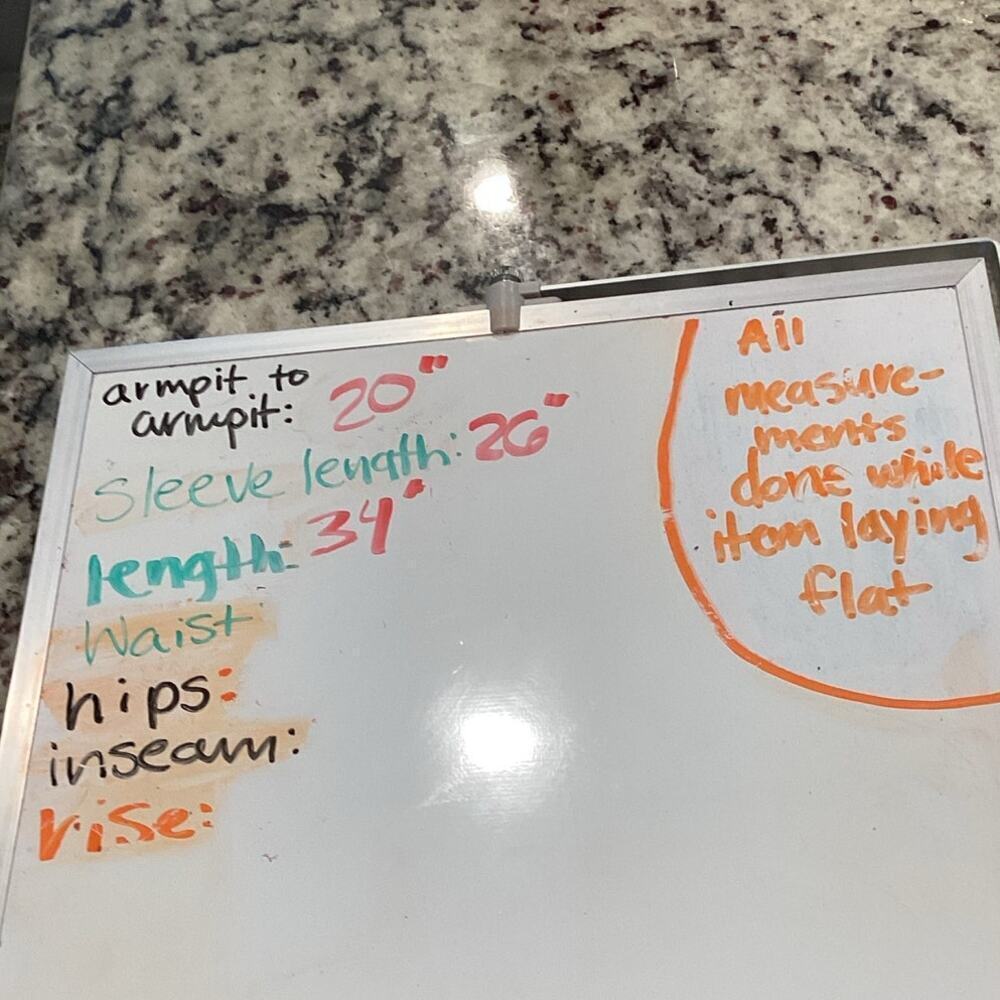 armpit to
armpit: 20"
Sleeve length: 26"
length: 34"
Waist
hips:
inseam:
rise:
All
measure-
ments
done while
item laying
flat